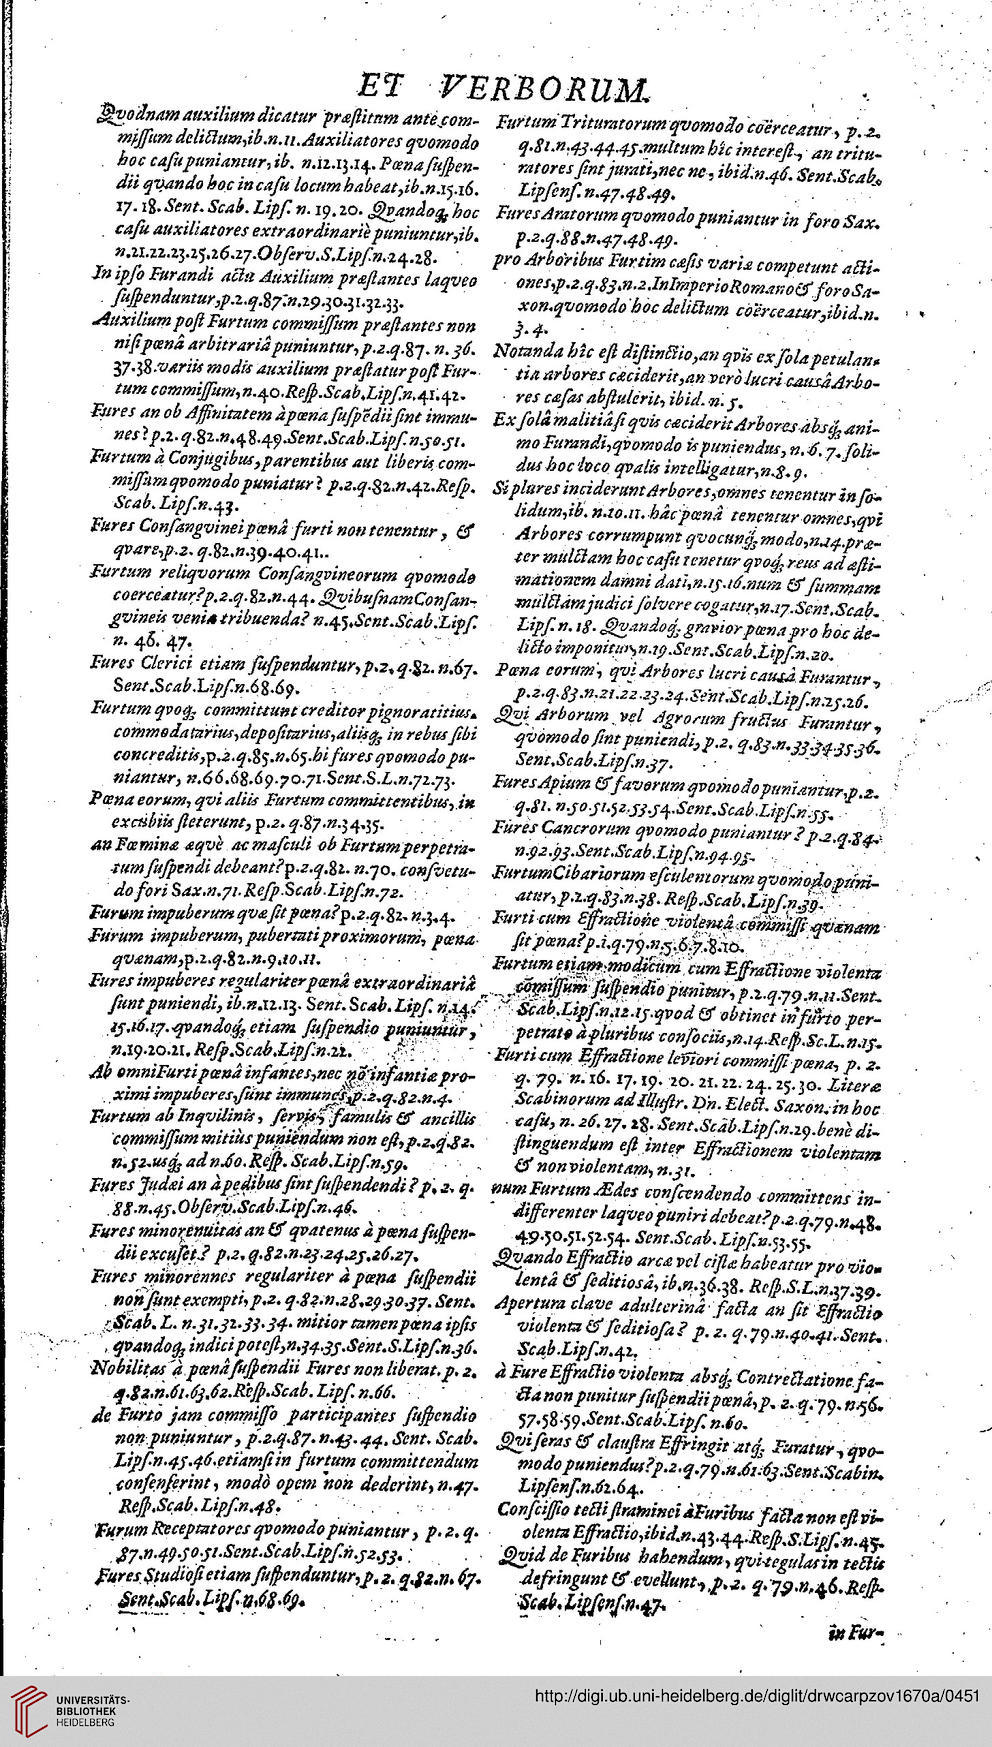 ET VERBORUM.
Qvodnam auxilium dicatur præſtitum ante com-
miſſum delictum,ib.n.11.Auxiliatores qvomodo
hoc caſu puniantur, ib. n.12.13.14. Pœna ſuſpen-
dii qvando hoc in caſu locum habeat,ib.n.15.16.
17.18.Sent. Scab. Lipſ. n. 19.20. Qvandoq; hoc
caſu auxiliatores extraordinariè puniuntur,ib.
n.21.22.23.25.26.27.Obſerv.S.Lipſ.n.24.28.
In ipſo Furandi actu Auxilium præſtantes laqveo
ſuſpenduntur,p.2.q.87.n.29.30.31.32.33.
Auxilium poſt Furtum commiſſum præſtantes non
niſi pœnâ arbitrariâ puniuntur, p.2.q.87. n. 36.
37.38.variis modis auxilium præſtatur poſt Fur-
tum commiſſum,n.40.Reſp.Scab.Lipſ.n.41.42.
Fures an ob Affinitatem à pœna ſuſpēdii ſint immu-
nes? p.2.q.82.n.48.49.Sent.Scab.Lipſ.n.50.51.
Furtum à Conjugibus,parentibus aut liberis com-
miſſum qvomodo puniatur? p.2.q.82.n.42.Reſp.
Scab. Lipſ.n.43.
Fures Conſangvinei pœnâ furti non tenentur, &
qvare,p.2. q.82.n.39.40.41..
Furtum reliqvorum Conſangvineorum qvomodo
coerceatur?p.2.q.82.n.44. QvibuſnamConſan-
gvineis venia tribuenda? n.45.Sent.Scab.Lipſ.
n. 46. 47.
Fures Clerici etiam ſuſpenduntur, p.2. q.82. n.67.
Sent.Scab.Lipſ.n.68.69.
Furtum qvoq; committunt creditor pignoratitius.
commodatarius,depoſitarius,aliisq; in rebus ſibi
concreditis,p.2.q.85.n.65.hi fures qvomodo pu-
niantur, n.66.68.69.70.71.Sent.S.L.n.72.73.
Pœna eorum, qvi aliis Furtum committentibus, in
excubiis ſteterunt, p.2. q.87.n.34.35.
an Fœminæ æqvè ac maſculi ob Furtum perpetra-
tum ſuſpendi debeant?p.2.q.82. n.70. conſvetu-
do fori Sax.n.71.Reſp.Scab.Lipſ.n.72.
Furum impuberum qvæ ſit pœna? p.2.q.82. n.3.4.
Furum impuberum, pubertati proximorum, pœna
qvænam,p.2.q.82.n.9.10.11.
Fures impuberes regulariter pœnâ extraordinariâ
ſunt puniendi, ib.n.12.13. Sent. Scab. Lipſ. n.14.
15.16.17.qvandoq; etiam ſuſpendio puniuntur,
n.19.20.21. Reſp.Scab.Lipſ.n.22.
Ab omni Furti pœnâ infantes,nec nō infantiæ pro-
ximi impuberes,ſunt immunes,p.2.q.82.n.4.
Furtum ab Inqvilinis, ſervis, famulis & ancillis
commiſſum mitiùs puniendum non eſt, p.2.q.82.
n.52.usq; ad n.60.Reſp. Scab.Lipſ.n.59.
Fures Judæi an à pedibus ſint ſuſpendendi? p. 2. q.
88.n.45.Obſerv.Scab.Lipſ.n.46.
Fures minorennitas an & qvatenus à pœna ſuſpen-
dii excuſet? p.2. q.82.n.23.24.25.26.27.
Fures minorennes regulariter à pœna ſuſpendii
non ſunt exempti, p.2. q.82.n.28.29.30.37. Sent.
Scab. L. n.31.32.33.34. mitior tamen pœna ipſis
qvandoq; indici poteſt,n.34.35.Sent.S.Lipſ.n.36.
Nobilitas à pœnâ ſuſpendii Fures non liberat, p. 2.
q.82.n.61.63.62.Reſp.Scab. Lipſ. n.66.
de Furto jam commiſſo participantes ſuſpendio
non puniuntur, p.2.q.87. n.43. 44. Sent. Scab.
Lipſ.n.45.46.etiamſi in furtum committendum
conſenſerint, modò opem non dederint, n.47.
Reſp.Scab. Lipſ.n.48.
Furum Receptatores qvomodo puniantur, p. 2. q.
87.n.49.50.51.Sent.Scab.Lipſ.n.52.53.
Fures Studioſi etiam ſuſpenduntur, p. 2. q.82.n. 67.
Sent.Scab. Lipſ. n.68.69.
Furtum Trituratorum qvomodo coërceatur, p. 2.
q.81.n.43.44.45.multum hîc intereſt, an tritu-
ratores ſint jurati,nec ne, ibid.n.46. Sent.Scab.
Lipſenſ.n.47.48.49.
Fures Aratorum qvomodo puniantur in foro Sax.
p.2.q.88.n.47.48.49.
pro Arboribus Furtim cæſis variæ competunt acti-
ones,p.2.q.83.n.2.InImperioRomano& foroSa-
xon.qvomodo hoc delictum coërceatur,ibid.n.
3.4.
Notanda hîc eſt diſtinctio,an qvis ex ſola petulan-
tia arbores cæciderit,an verò lucri causâ Arbo-
res cæſas abſtulerit, ibid. n. 5.
Ex ſolâ malitiâ ſi qvis cæciderit Arbores absq; ani-
mo Furandi,qvomodo is puniendus, n.6.7. ſoli-
dus hoc loco qvalis intelligatur,n.8.9.
Si plures inciderunt Arbores,omnes tenentur in ſo-
lidum,ib. n.10.11. hâc pœnâ tenentur omnes,qvi
Arbores corrumpunt qvocunq; modo,n.14.præ-
ter mulctam hoc caſu tenetur qvoq; reus ad æſti-
mationem damni dati,n.15.16.num & ſummam
mulctam judici ſolvere cogatur,n.17.Sent.Scab.
Lipſ. n. 18. Qvandoq; gravior pœna pro hoc de-
licto imponitur,n.19.Sent.Scab.Lipſ.n.20.
Pœna eorum, qvi Arbores lucri causâ Furantur,
p.2.q.83.n.21.22.23.24.Sent.Scab.Lipſ.n.25.26.
Qvi Arborum vel Agrorum fructus Furantur,
qvomodo ſint puniendi, p.2. q.83.n.33.34.35.36.
Sent.Scab.Lipſ.n.37.
Fures Apium & favorum qvomodo puniantur,p.2.
q.81. n.50.51.52.53.54.Sent.Scab.Lipſ.n.55.
Fures Cancrorum qvomodo puniantur? p.2.q.84.
n.92.93.Sent.Scab.Lipſ.n.94.95.
FurtumCibariorum eſculentorum qvomodo puni-
atur, p.2.q.83.n.38. Reſp.Scab.Lipſ.n.39.
Furti cum Effractione violentâ commiſſi qvænam
ſit pœna? p.2.q.79.n.5.6.7.8.10.
Furtum etiam modicum cum Effractione violenta
cōmiſſum ſuſpendio punitur, p.2.q.79.n.11.Sent.
Scab.Lipſ.n.12.15.qvod & obtinet in furto per-
petrato à pluribus conſociis,n.14.Reſp.Sc.L.n.15.
Furti cum Effractione leviori commiſſi pœna, p. 2.
q. 79. n. 16. 17. 19. 20. 21. 22. 24. 25. 30. Literæ
Scabinorum ad Illuſtr. Dn. Elect. Saxon. in hoc
caſu, n. 26.27. 28. Sent.Scab.Lipſ.n.29.benè di-
ſtinguendum eſt inter Effractionem violentam
& non violentam, n.31.
num Furtum Ædes conſcendendo committens in-
differenter laqveo puniri debeat? p.2.q.79.n.48.
49.50.51.52.54. Sent.Scab. Lipſ.n.53.55.
Qvando Effractio arcæ vel ciſtæ habeatur pro vio-
lentâ & ſeditiosâ,ib,n.36.38. Reſp.S.L.n.37.39.
Apertura clave adulterinâ facta an ſit Effractio
violenta & ſeditioſa? p. 2. q. 79.n.40.41.Sent.
Scab.Lipſ.n.42.
à Fure Effractio violenta absq; Contrectatione fa-
cta non punitur ſuſpendii pœnâ, p. 2. q. 79. n.56.
57.58.59.Sent.Scab.Lipſ. n.60.
Qvi ſeras & clauſtra Effringit atq; Furatur, qvo-
modo puniendus?p.2.q.79.n.61.63.Sent.Scabin.
Lipſenſ.n.62.64.
Conſciſſio tecti ſtraminei à Furibus facta non eſt vi-
olenta Effractio,ibid.n.43.44.Reſp.S.Lipſ.n.45.
Qvid de Furibus habendum, qvi tegulas in tectis
defringunt & evellunt, p. 2. q. 79.n.46. Reſp.
Scab. Lipſenſ.n.47.
in Fur-
UNIVERSITÄTS-
BIBLIOTHEK
HEIDELBERG
http://digi.ub.uni-heidelberg.de/diglit/drwcarpzov1670a/0451